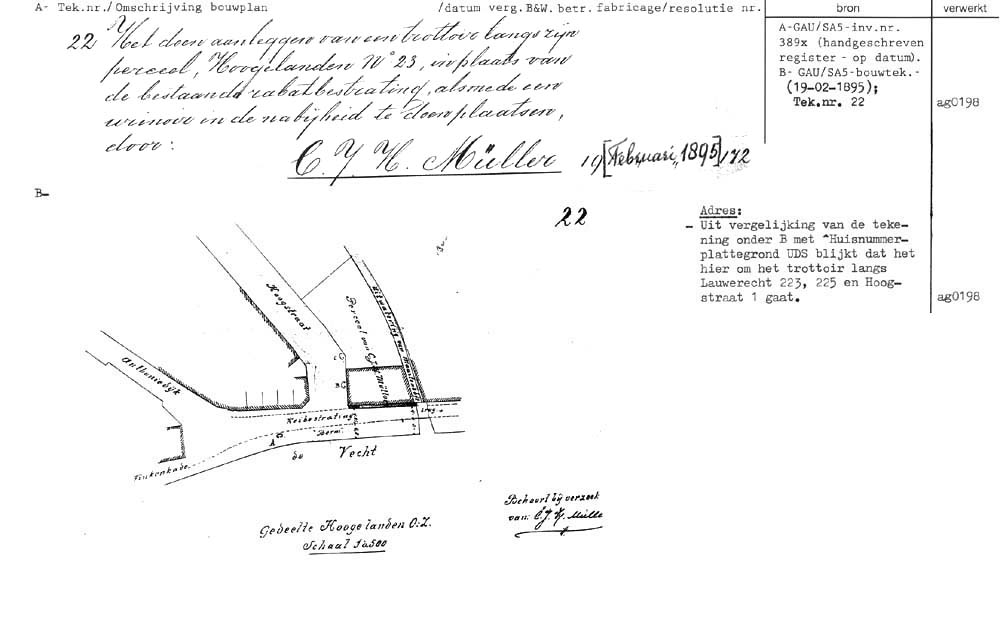 A- Tek.nr./Omschrijving bouwplan /datum verg.B&W. betr. fabricage/resolutie nr. bron verwerkt
22 Het doen aanleggen van een trottoir langs zijn
perceel, Hoogelanden No 23, in plaats van
de bestaande rabatbestrating, alsmede een
urinoir in de nabijheid te doen plaatsen,
door:
C. J. H. Müller 19 [Februari, 1895] 172
A-GAU/SA5-inv.nr.
389x (handgeschreven
register - op datum).
B- GAU/SA5-bouwtek.-
(19-02-1895);
Tek.nr. 22 ag0198
B-
22
Adres:
- Uit vergelijking van de teke-
ning onder B met "Huisnummer-
plattegrond UDS blijkt dat het
hier om het trottoir langs
Lauwerecht 223, 225 en Hoog-
straat 1 gaat. ag0198
Hoogstraat
Perceel van C.J.H. Müller
Anthoniedijk
C
B
A
Keibestrating
Berm
Vinkenkade
de Vecht
Gedeelte Hooge landen O.Z.
Schaal 1 à 500
Behoort bij verzoek
van: C. J. H. Müller